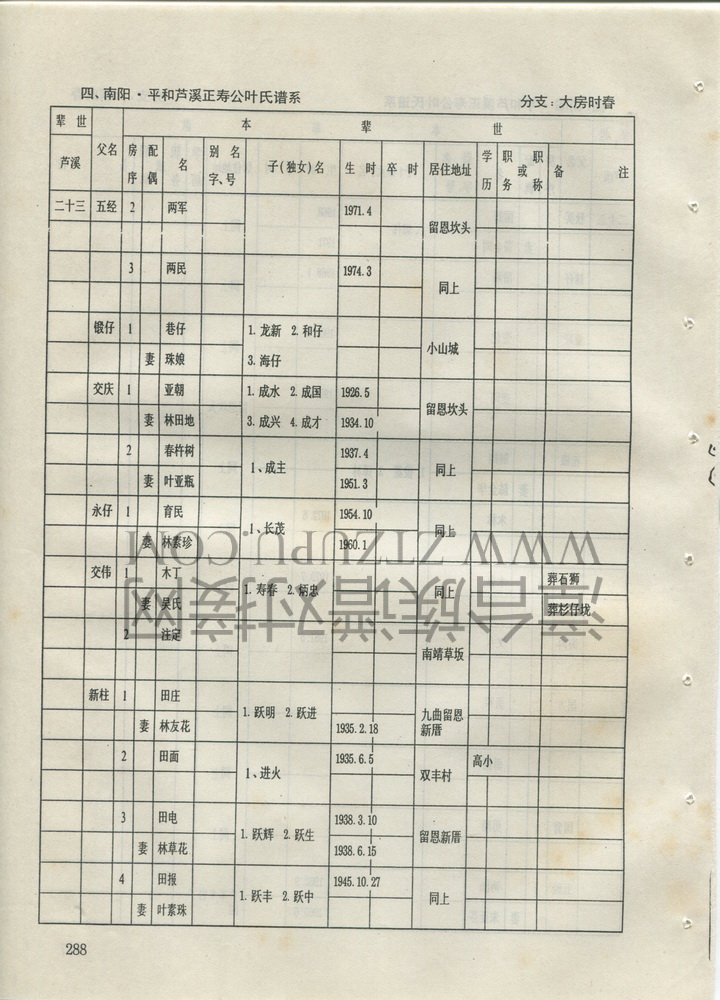 四、南阳·平和芦溪正寿公叶氏谱系 分支：大房时春
辈世 本 辈 世
芦溪 父名 房序 配偶 名 别名字、号 子(独女)名 生时 卒时 居住地址 学历 职务或职称 备注
二十三 五经 2 两军 1971.4 留恩坎头
3 两民 1974.3 同上
锻仔 1 巷仔 1.龙新 2.和仔 小山城
妻 珠娘 3.海仔
交庆 1 亚朝 1.成水 2.成国 1926.5 留恩坎头
妻 林田地 3.成兴 4.成才 1934.10
2 春杵树 1、成主 1937.4 同上
妻 叶亚瓶 1951.3
永仔 1 育民 1、长茂 1954.10 同上
妻 林素珍 1960.1
交伟 1 木丁 1.寿春 2.炳忠 同上 葬石狮
妻 吴氏 葬杉仔垅
2 注定 南靖草坂
新柱 1 田庄 1.跃明 2.跃进 九曲留恩新厝
妻 林友花 1935.2.18
2 田面 1、进火 1935.6.5 双丰村 高小
3 田电 1.跃辉 2.跃生 1938.3.10 留恩新厝
妻 林草花 1938.6.15
4 田报 1.跃丰 2.跃中 1945.10.27 同上
妻 叶素珠
288
WWW.ZTZUPU.COM
漳台族谱对接网